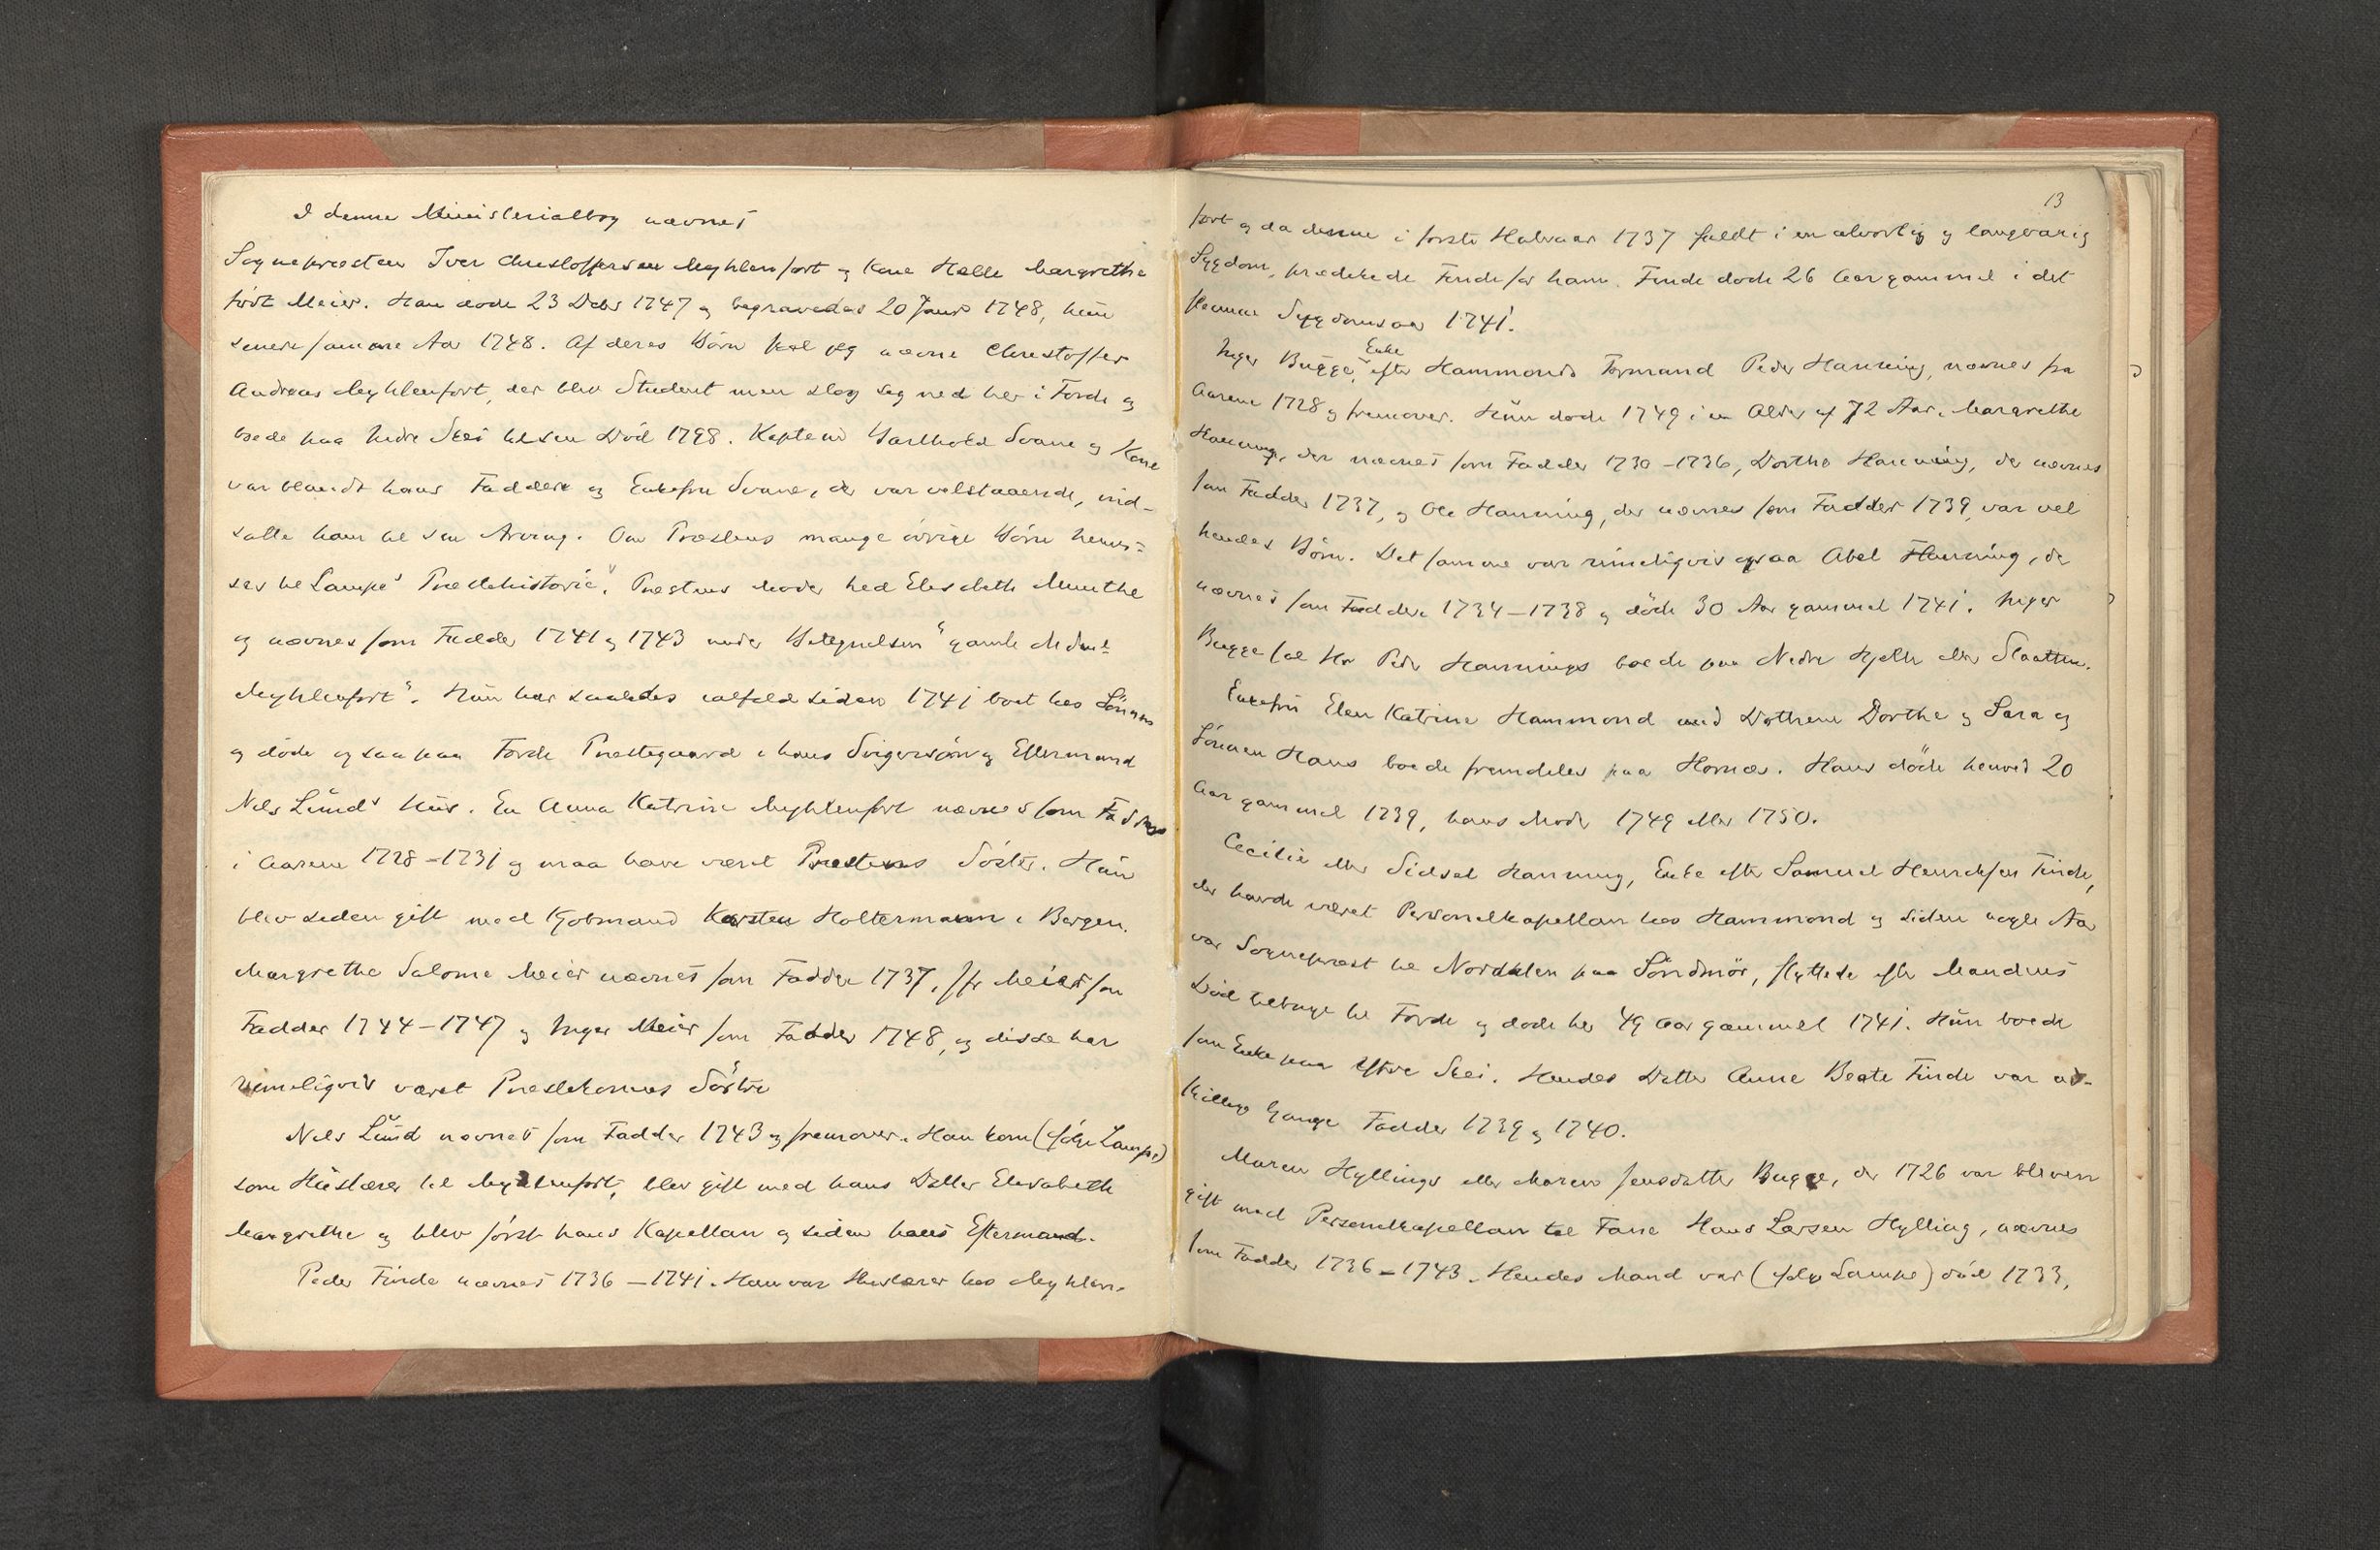 I denne Ministerialbog nævnes
Sognepresten Iver Christoffersen Myhlenfort og Kone Helle Margrethe
født Meier. Han døde 23 Debr 1747 og begravedes 20 Janr 1748, hun
senere samme Aar 1748. Af deres Børn skal jeg nævne Christoffer
Andreas Myhlenfort, der blev Student men slog sig ned her i Førde og
boede paa Indre Skei til sin Död 1798. Kaptein Barthold Svane og Kone
var blandt hans Faddere og Enkefru Svane, der var velstaaende, ind-
satte ham til sin Arving. Om Prestens mange övrige Börn henvi-
ses til Lampe's "Prestehistorie". Prestens Moder hed Elisabeth Munthe
og nævnes som Fadder 1741 og 1743 under Betegnelsen "gamle Madme
Myhlenfort". Hun har saaledes ialfald siden 1741 boet hos Sönnen
og döde ogsaa paa Förde Prestegaard i hans Svigersöns og Eftermand
Nils Lund's Hus. En Anna Katrine Myhlenfort nævnes som Fadder
i Aarene 1728-1731 og maa have været Prestens Söster. Hun
blev siden gift med Kjobmand Karsten Holtermann i Bergen.
Margrethe Salome Meier nævnes som Fadder 1737, Jfr Meier som
Fadder 1744-1747 og Inger Meier som Fadder 1748, og disse har
rimeligvis været Prestekonens Söstre
Nils Lund nævnes som Fadder 1743 og fremover. Han kom (ifölge Lampe)
som Huslærer til Myhlenfort, blev gift med hans Datter Elisabeth
Margrethe og blev först hans Kapellan og siden hans Eftermand.
Peder Finde nævnes 1736-1741. Han var Huslærer hos Myhlen-
13
fort og da denne i første Halvaar 1737 faldt i en alvorlig og langvarig
Sygdom, prædikede Finde for ham. Finde døde 26 Aar gammel i det
slemme Sygdomsaar 1741.
Inger Bugge, Enke efter Hammonds Formand Peder Hanning, nævnes fra
Aarene 1728 og fremover. Hun døde 1749 i en Alder af 72 Aar. Margrethe
Hanning, der nævnes som Fadder 1730-1736, Dorthe Hanning, der nævnes
som Fadder 1737, og Ole Hanning, der nævnes som Fadder 1739, var vel
hendes Börn. Det samme var rimeligvis ogsaa Abel Hanning, der
nævnes som Fadder 1734-1738 og döde 30 Aar gammel 1741. Inger
Bugge sal Hr Peder Hannings boede paa Nedre Hjelle eller Slaatten.
Enkefru Elen Katrine Hammond med Döttrene Dorthe og Sara og
Sönnen Hans boede fremdeles paa Hornes. Hans döde henved 20
Aar gammel 1739, hans Moder 1749 eller 1750.
Cecilie eller Sidsel Hanning, Enke efter Samuel Henriksen Finde,
der havde været Personelkapellan hos Hammond og siden nogle Aar
var Sogneprest til Norddalen paa Söndmör, flyttede efter Mandens
Död tilbage til Förde og döde her 49 Aar gammel 1741. Hun boede
som Enke paa Ytre Skei. Hendes Datter Anne Beate Finde var ad-
skillige Gange Fadder 1739 og 1740.
Maren Hyllings eller Maren Jensdatter Bugge, der 1726 var bleven
gift med Personelkapellan til Fane Hans Larsen Hylling, nævnes
som Fadder 1736-1743. Hendes Mand var (ifölge Lampe) död 1733,